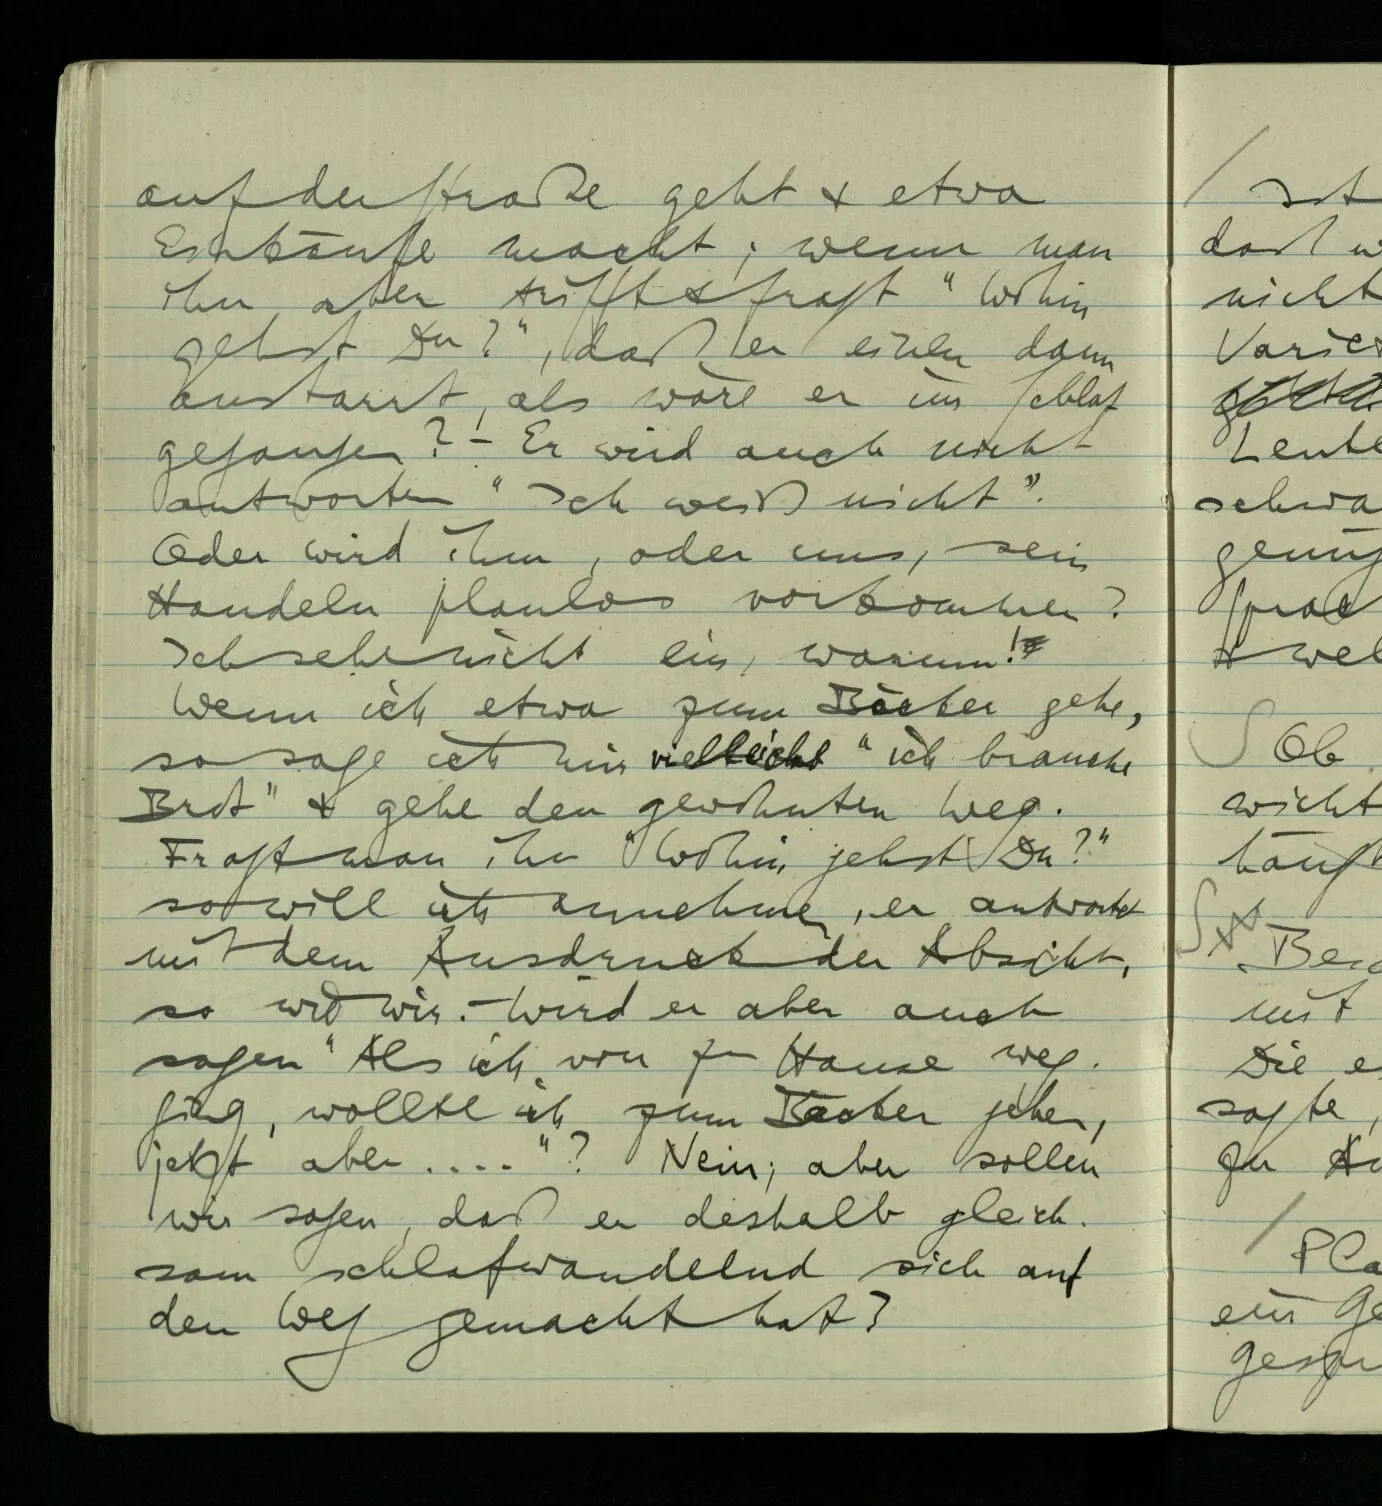 auf der Straße geht & etwa
Einkäufe macht; wenn man
ihn aber trifft & fragt "Wohin
gehst Du?", daß er einen dann
anstarrt, als wäre er im Schlaf
gegangen? – Er wird auch nicht
antworten "Ich weiß nicht".
Oder wird ihm, oder uns, sein
Handeln planlos vorkommen?
Ich sehe nicht ein, warum!
Wenn ich etwa zum Bäcker gehe,
so sage ich mir vielleicht "ich brauche
Brot" & gehe den gewohnten Weg.
Fragt man ihn "Wohin gehst Du?"
so will ich annehmen, er antwortet
mit dem Ausdruck der Absicht,
so wie wir. – Wird er aber auch
sagen "Als ich von zu Hause weg-
ging, wollte ich zum Bäcker gehen,
jetzt aber ...."? Nein; aber sollen
wir sagen, daß er deshalb gleich-
sam schlafwandelnd sich auf
den Weg gemacht hat?
daß
nicht
Leute
Ob
mit
Die
sagte,
ein